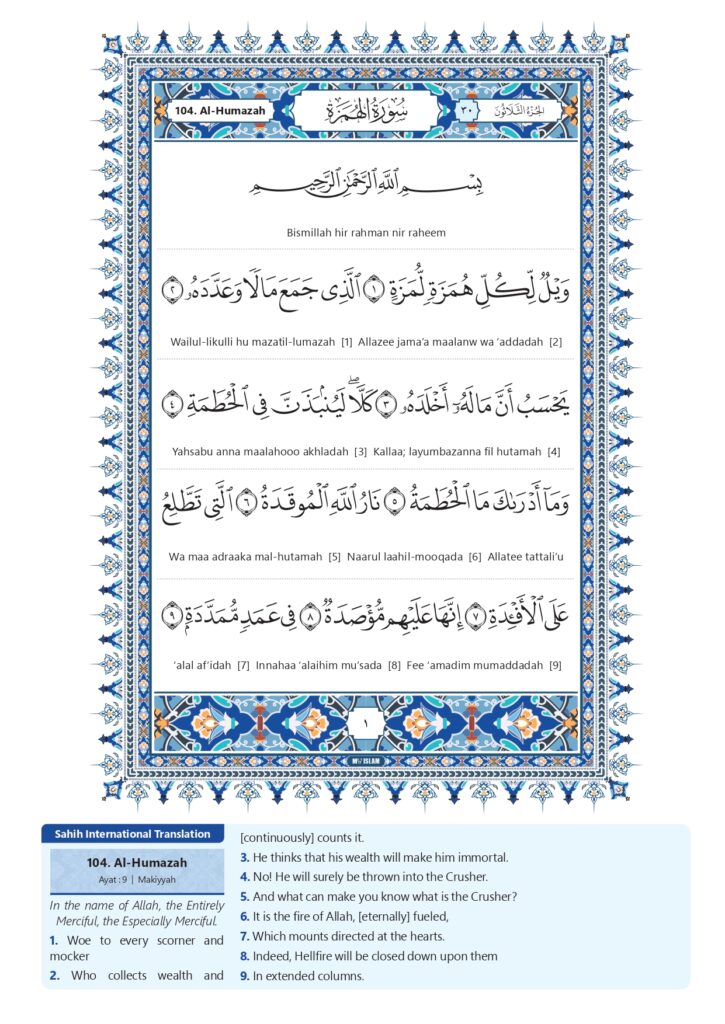 104. Al-Humazah
سُورَةُ الهُمَزَةِ
٣٠
الجُزْءُ الثَّلَاثُونَ
بِسْمِ ٱللَّهِ ٱلرَّحْمَٰنِ ٱلرَّحِيمِ
Bismillah hir rahman nir raheem
وَيْلٌ لِّكُلِّ هُمَزَةٍ لُّمَزَةٍ ١ ٱلَّذِى جَمَعَ مَالًا وَعَدَّدَهُۥ ٢
Wailul-likulli hu mazatil-lumazah [1] Allazee jama’a maalanw wa ‘addadah [2]
يَحْسَبُ أَنَّ مَالَهُۥٓ أَخْلَدَهُۥ ٣ كَلَّا ۖ لَيُنۢبَذَنَّ فِى ٱلْحُطَمَةِ ٤
Yahsabu anna maalahooo akhladah [3] Kallaa; layumbazanna fil hutamah [4]
وَمَآ أَدْرَىٰكَ مَا ٱلْحُطَمَةُ ٥ نَارُ ٱللَّهِ ٱلْمُوقَدَةُ ٦ ٱلَّتِى تَطَّلِعُ
Wa maa adraaka mal-hutamah [5] Naarul laahil-mooqada [6] Allatee tattali’u
عَلَى ٱلْأَفْـِٔدَةِ ٧ إِنَّهَا عَلَيْهِم مُّؤْصَدَةٌ ٨ فِى عَمَدٍ مُّمَدَّدَةٍۭ ٩
‘alal af’idah [7] Innahaa ‘alaihim mu’sada [8] Fee ‘amadim mumaddadah [9]
١
MY ISLAM
Sahih International Translation
104. Al-Humazah
Ayat : 9 | Makiyyah
In the name of Allah, the Entirely
Merciful, the Especially Merciful.
1. Woe to every scorner and
mocker
2. Who collects wealth and
[continuously] counts it.
3. He thinks that his wealth will make him immortal.
4. No! He will surely be thrown into the Crusher.
5. And what can make you know what is the Crusher?
6. It is the fire of Allah, [eternally] fueled,
7. Which mounts directed at the hearts.
8. Indeed, Hellfire will be closed down upon them
9. In extended columns.